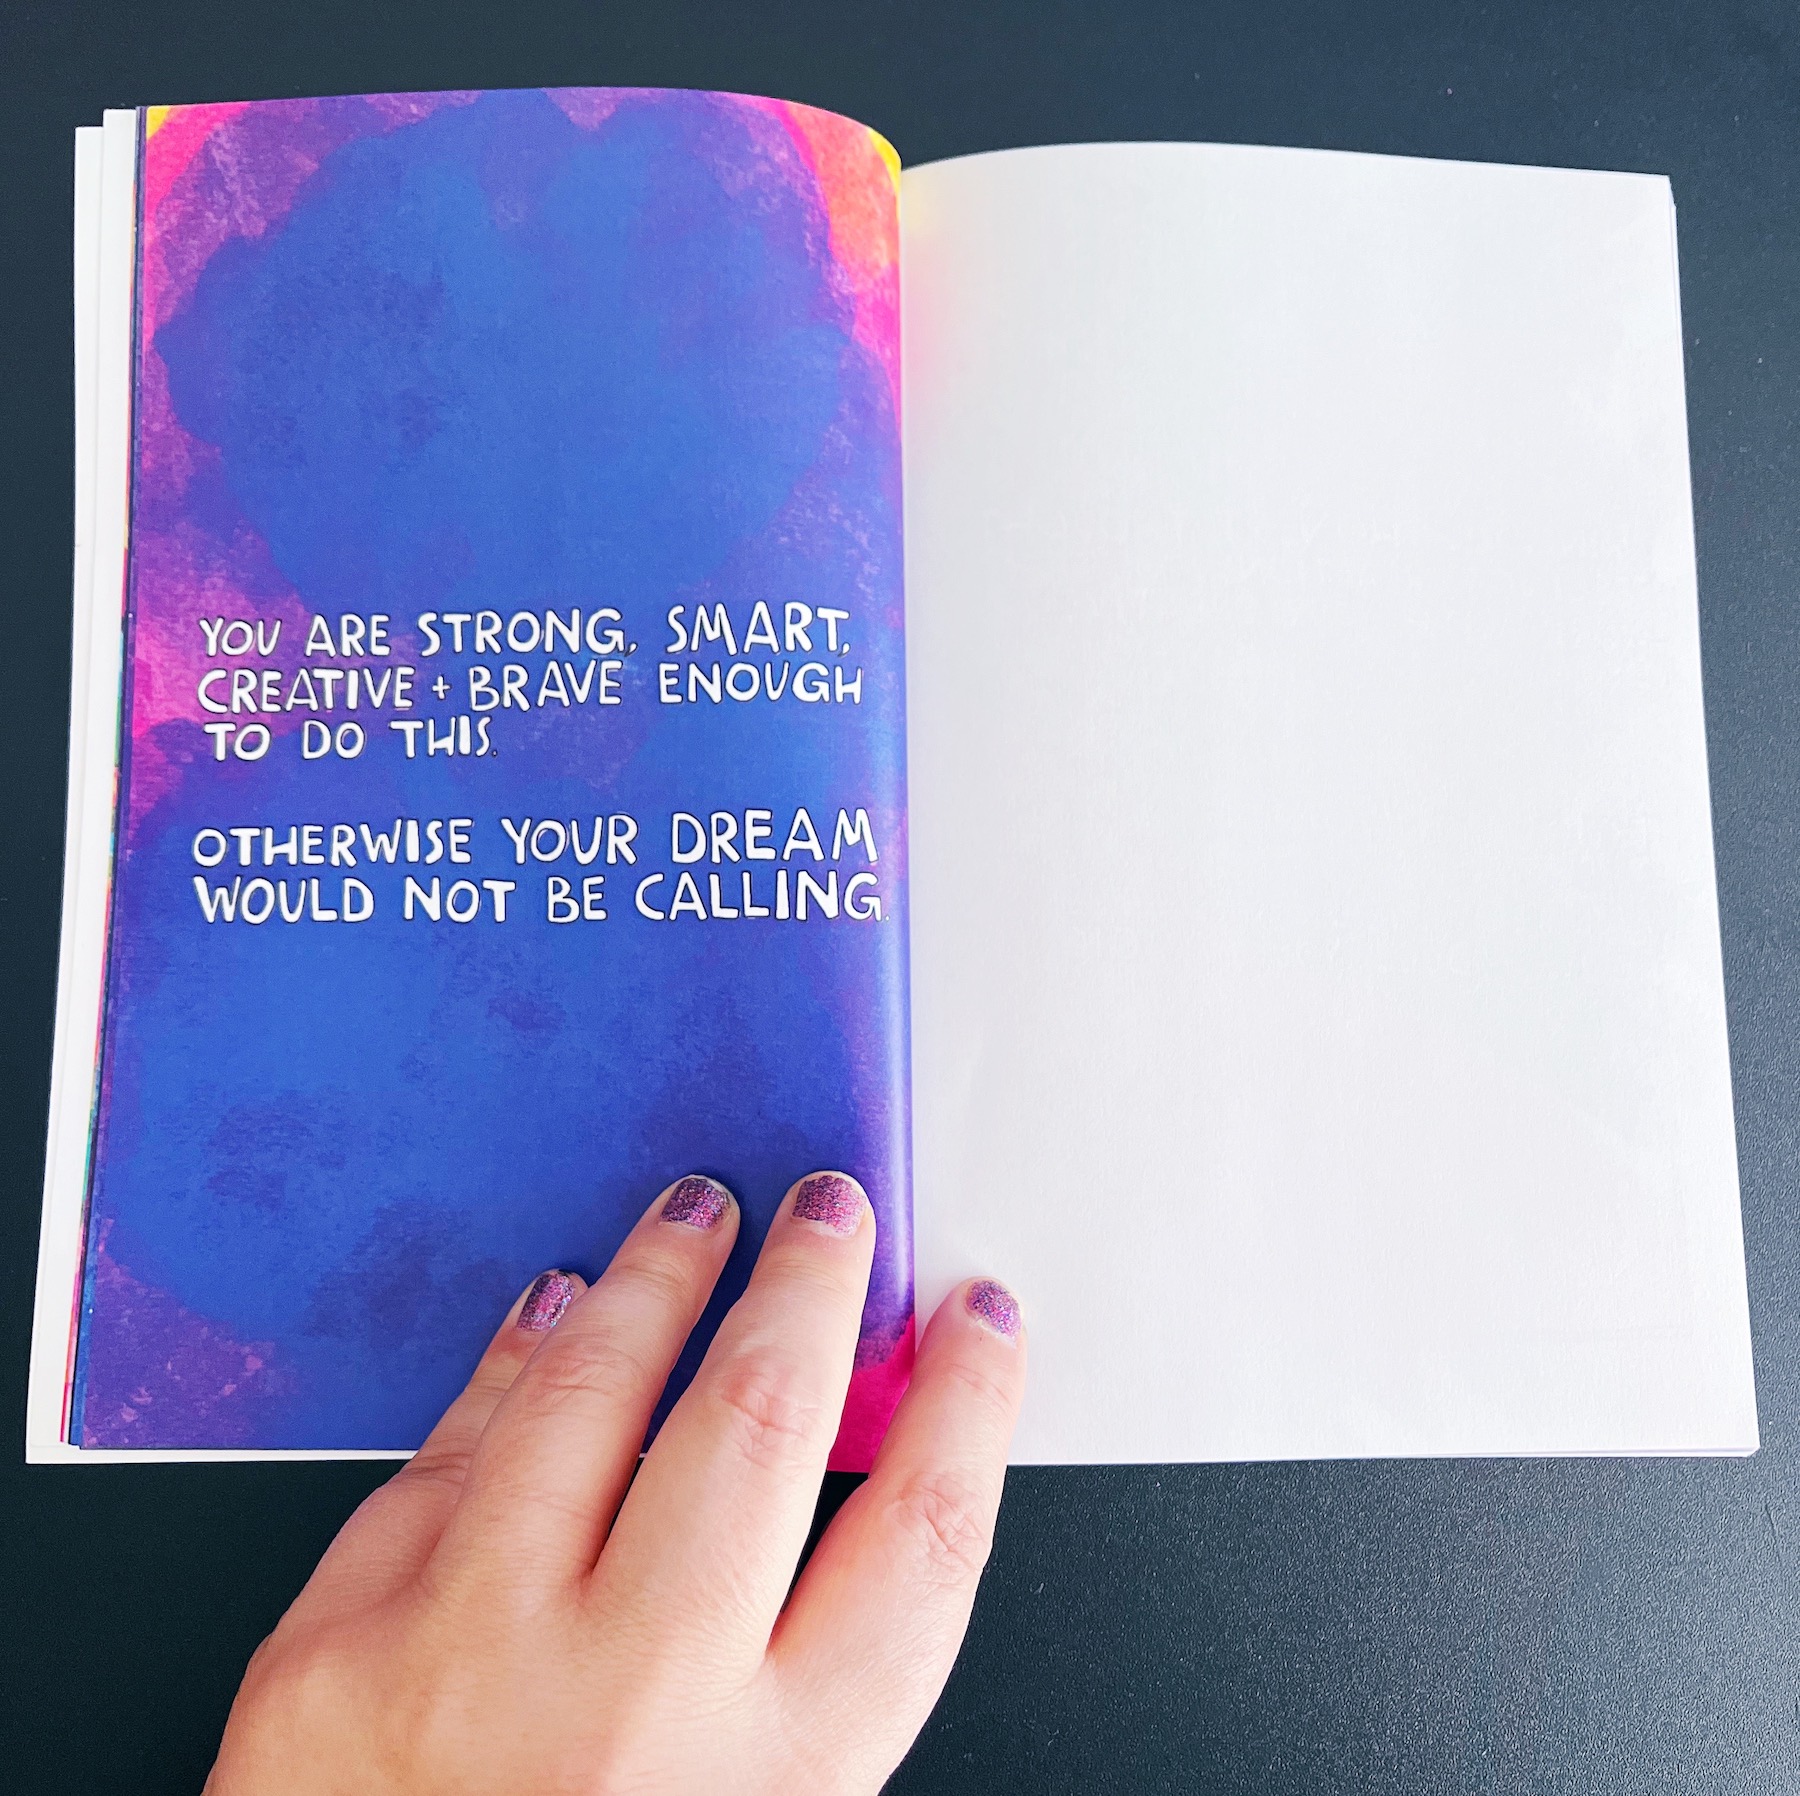 YOU ARE STRONG, SMART,
CREATIVE + BRAVE ENOUGH
TO DO THIS.
OTHERWISE YOUR DREAM
WOULD NOT BE CALLING.